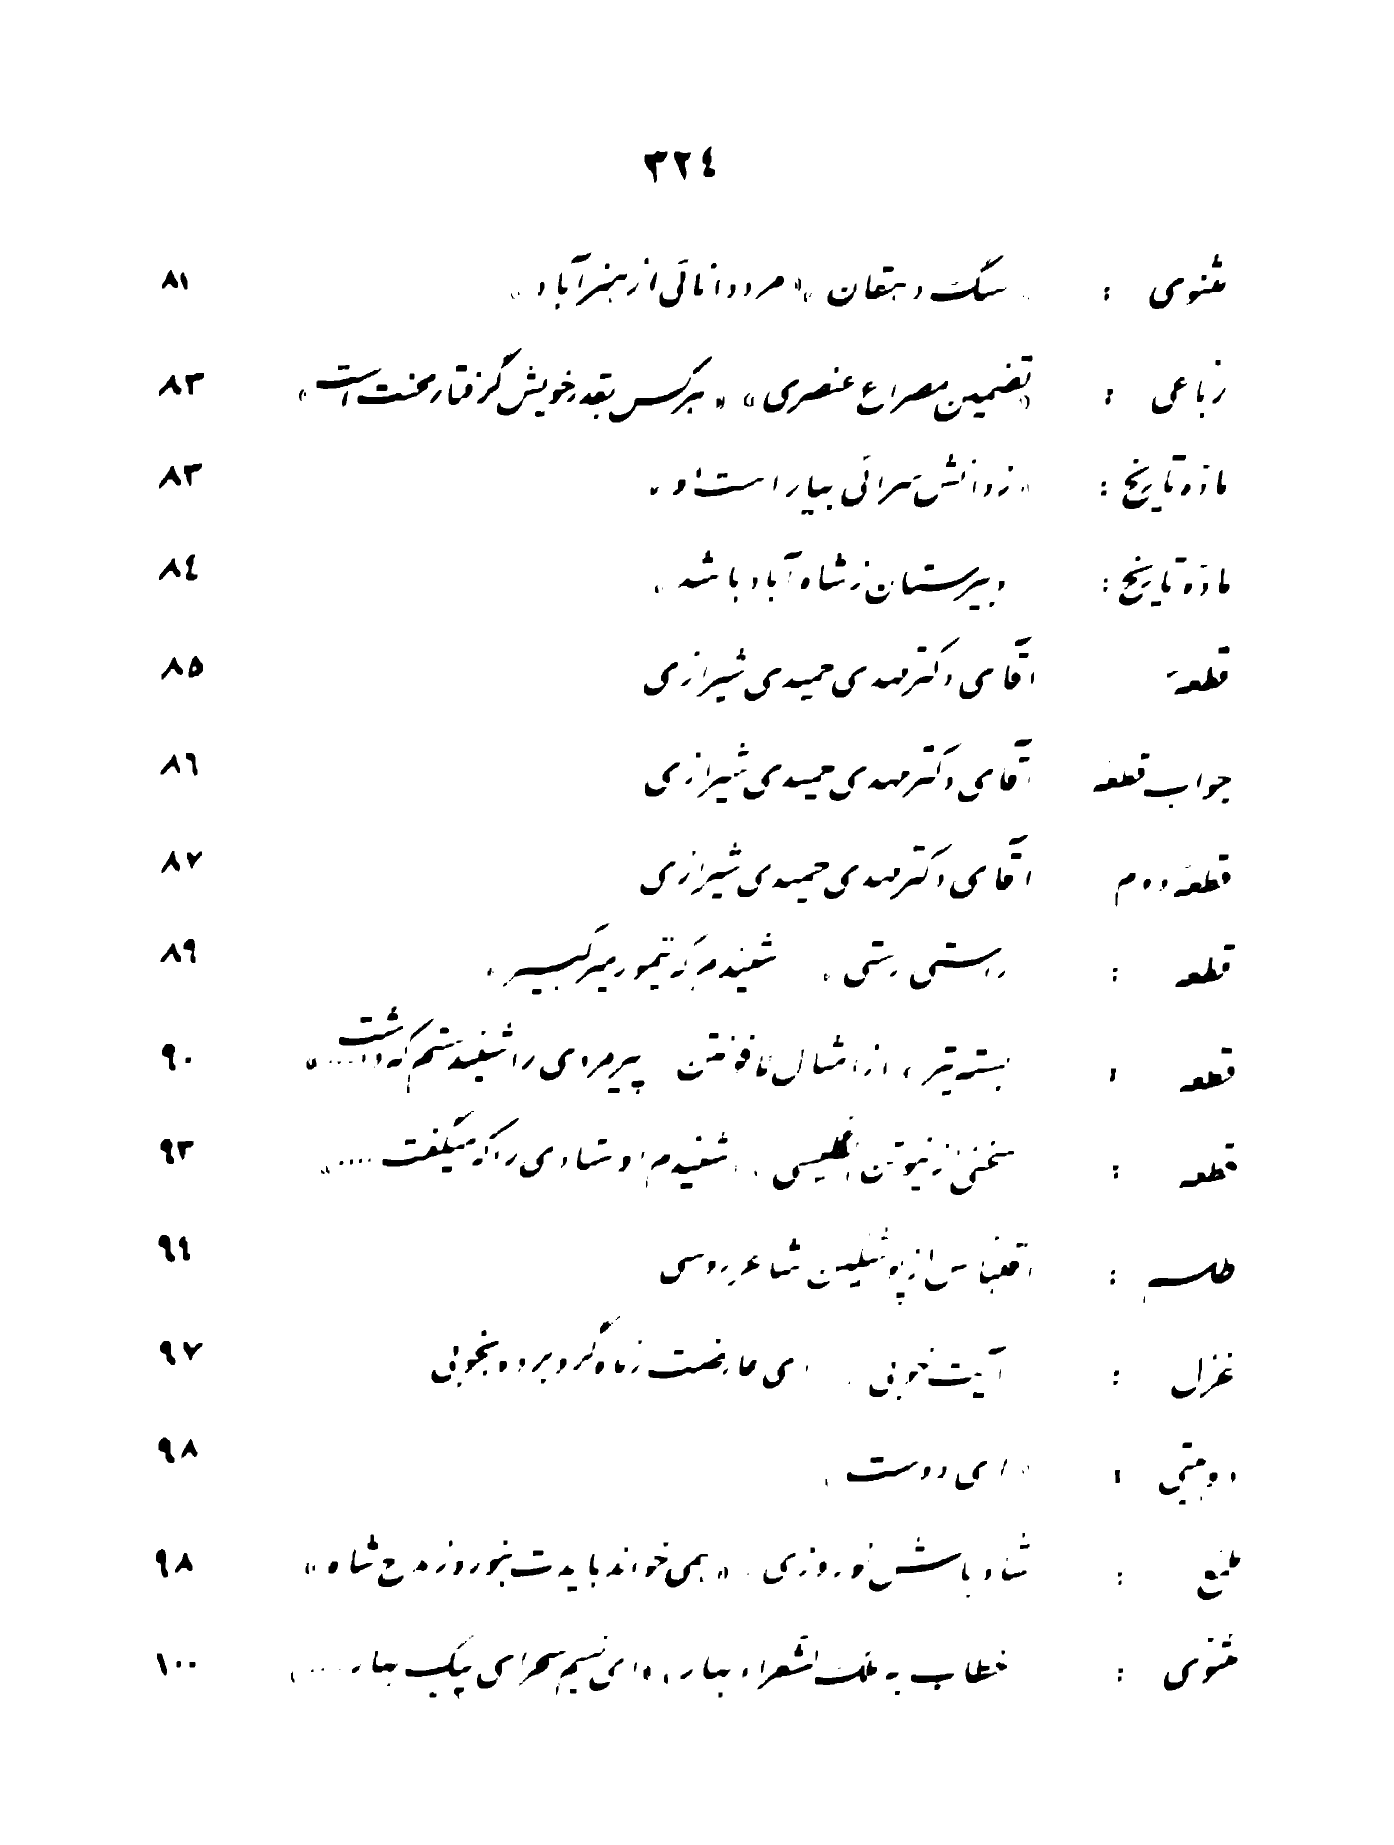 ٣٢٤
مثنوی : «سگ دهقان» «مرد دانائی از هنرآباد» ٨١
رباعی : «تضمین مصراع عنصری» «هرکس بقدر خویش گرفتار محنت است» ٨٣
ماده تاریخ : «ز دانش سرائی بیاراست او» ٨٣
ماده تاریخ : دبیرستان ز شاه آباد باشد» ٨٤
قطعه آقای دکتر مهدی حمیدی شیرازی ٨٥
جواب قطعه آقای دکتر مهدی حمیدی شیرازی ٨٦
قطعه دوم آقای دکتر مهدی حمیدی شیرازی ٨٧
قطعه : رستی رستی» شنیدم که تیمور میر کبیر» ٨٩
قطعه : بسته تیر، از امثال لافونتن پیرمردی را شنیدستم که داشت ....» ٩٠
قطعه : سخنی از نیوتن انگلیسی، شنیدم اوستادی را که میگفت ....» ٩٣
طلسم : اقتباس از پوشکین شاعر روسی ٩٤
غزل : آیت خوبی ای عارضت ز ماه گرو برده بخوبی ٩٧
دوبیتی : «ای دوست» ٩٨
ملمع : شادباش نوروزی «همی خواند بایدت بنوروز مدح شاه» ٩٨
مثنوی : خطاب به ملک الشعراء بهار، «ای نسیم سحر ای پیک بهار ....» ١٠٠